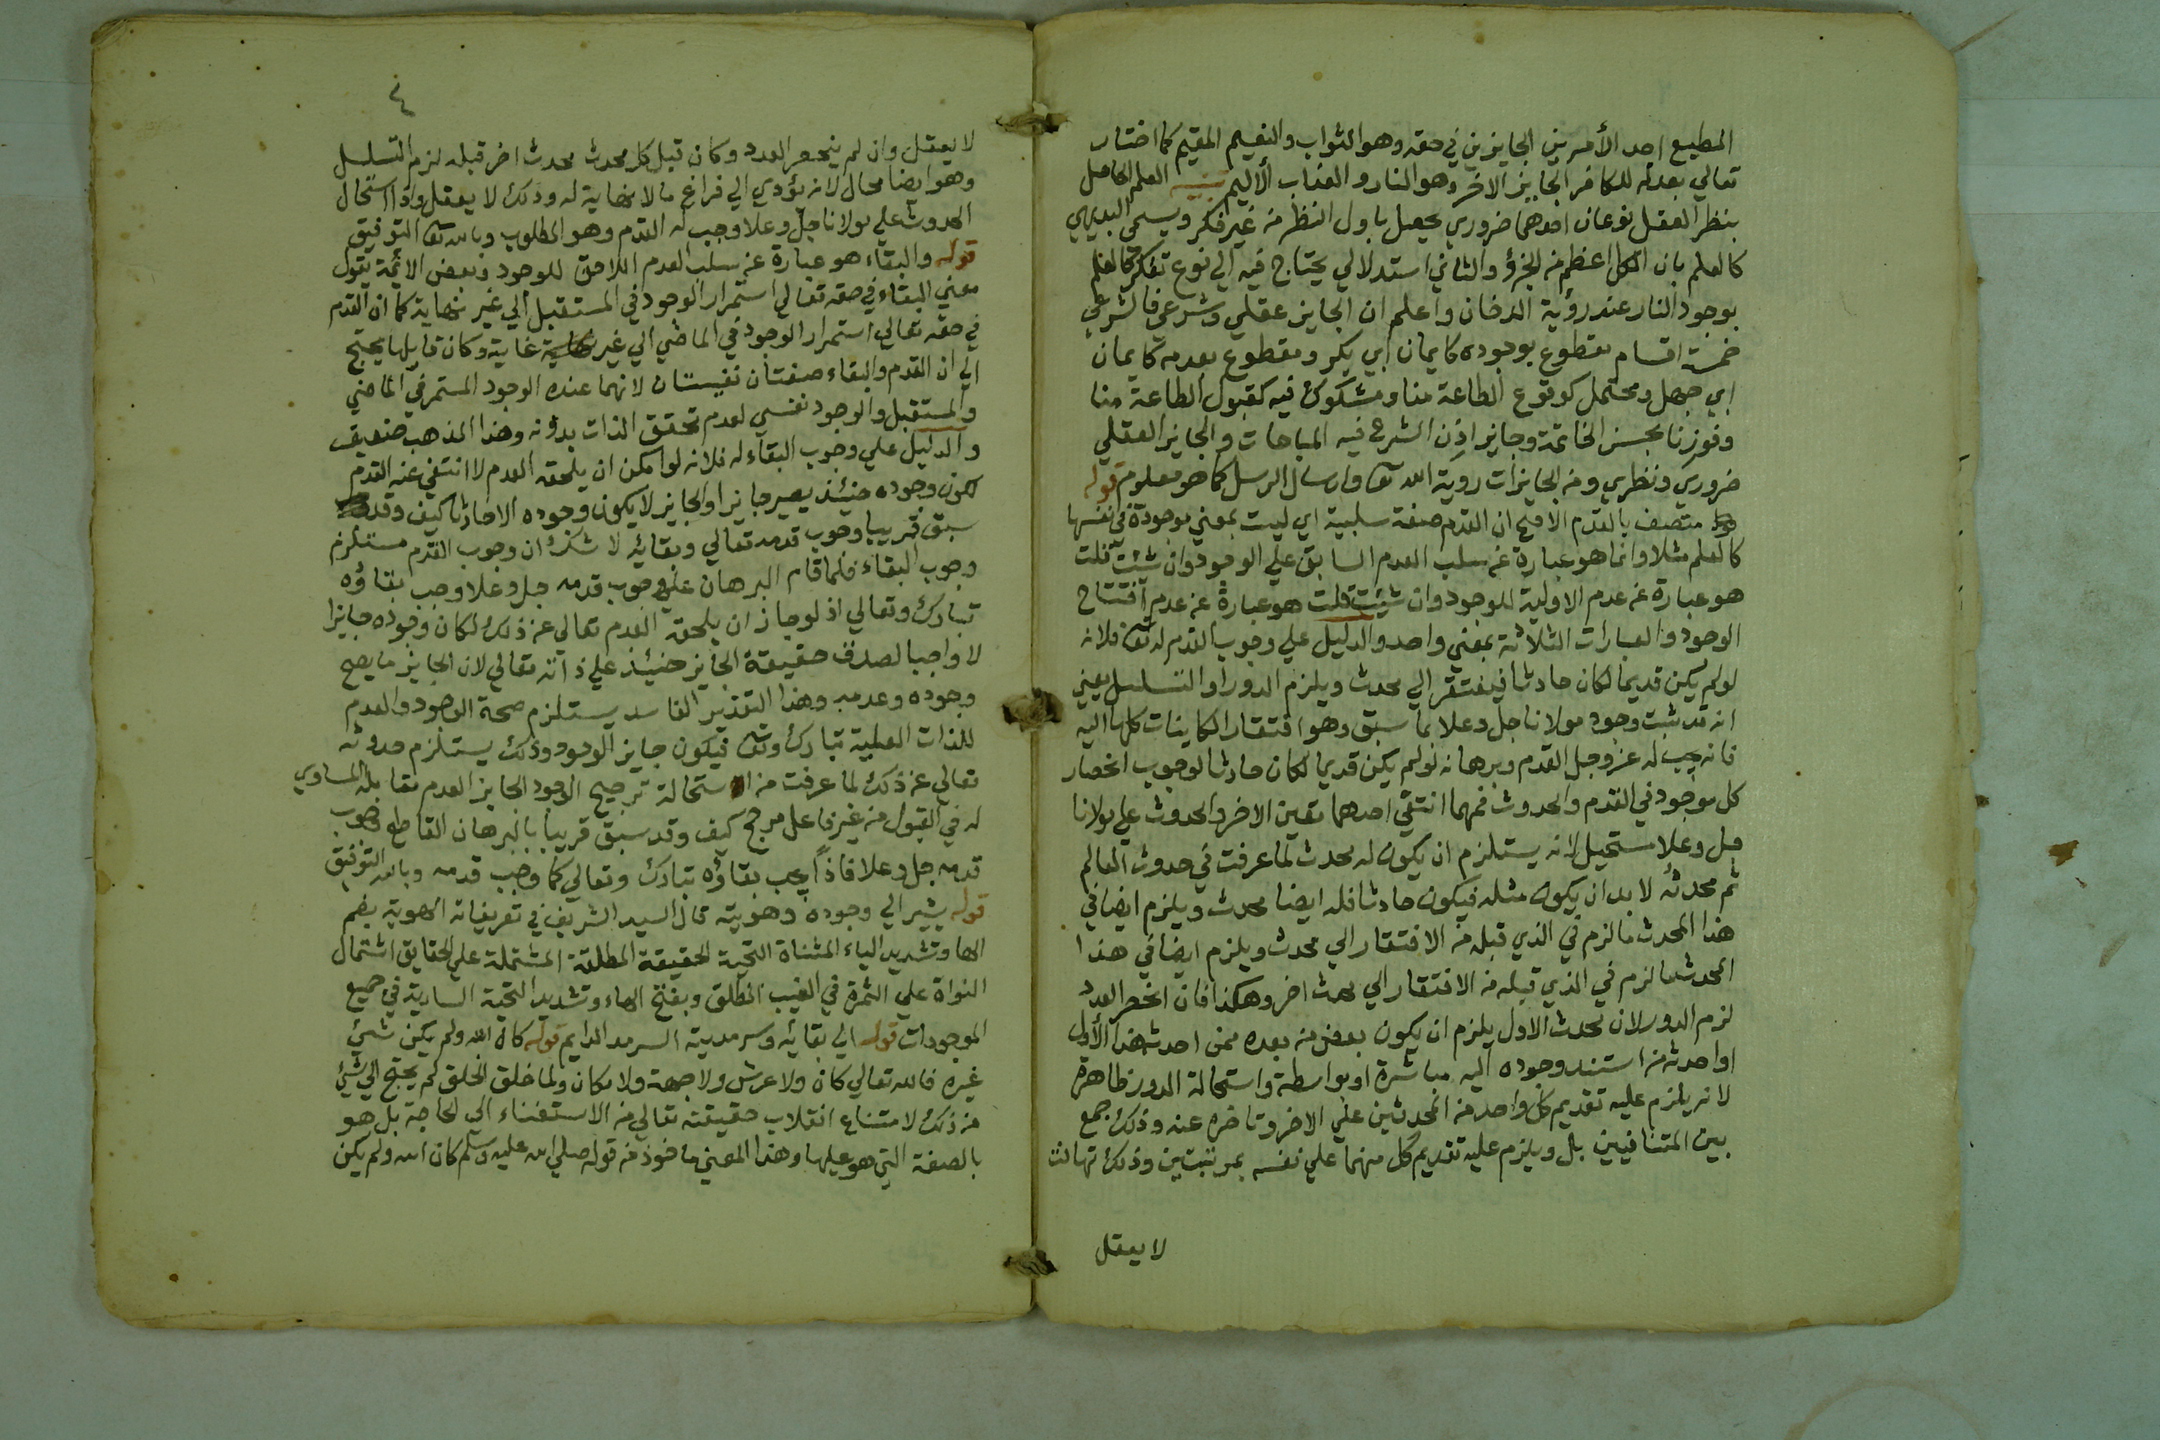 المطيع احد الأمرين الجايزين في حقه وهو الثواب والنعيم المقيم كما اختار
تعالي بعدله للكافر الجايز الاخر وهو النار والعذاب الأليم تنبيه العلم الحاصل
بنظر العقل نوعان احدهما ضروري يحصل باول النظر من غير فكر ويسمى البديهي
كالعلم بان الكل اعظم من الجزؤ والثاني استدلالي يحتاج فيه الي نوع تفكر كالعلم
بوجود النار عند رؤية الدخان واعلم ان الجايز عقلي وشرعي فالشرعي
خمسة اقسام مقطوع بوجوده كايمان ابي بكر ومقطوع بعدمه كايمان
ابي جهل ومحتمل كوقوع الطاعة منا ومشكوك فيه كقبول الطاعة منا
وفوزنا بحسن الخاتمة وجايز اذن الشرع فيه المباحات والجايز العقلي
ضروري ونظري ومن الجايزات روية الله تعا وارسال الرسل كما هو معلوم قوله
متصف بالقدم الاصح ان القدم صفة سلبية اي ليست بمعني موجودة في نفسها
كالعلم مثلا وانما هو عبارة عن سلب العدم السابق علي الوجود وان شئت قلت
هو عبارة عن عدم الاولية للوجود وان شيئت قلت هو عبارة عن عدم افتتاح
الوجود والعبارات الثلاثة بمعني واحد والدليل علي وجوب القدم له تعا فلانه
لو لم يكن قديما لكان حادثا فيفتقر الي محدث ويلزم الدور او التسلسل يعني
انه قد ثبت وجود مولانا جل وعلا بما سبق وهو افتقار الكاينات كلها اليه
فانه يجب له عز وجل القدم وبرهانه لو لم يكن قديما لكان حادثا لوجوب انحصار
كل موجود في القدم والحدوث فمهما انتفي احدهما تعين الاخر والحدوث علي مولانا
جل وعلا مستحيل لانه يستلزم ان يكون له محدث لما عرفت في حدوث العالم
ثم محدثه لا بد ان يكون مثله فيكون حادثا فله ايضا محدث ويلزم ايضا في
هذا المحدث ما لزم في الذي قبله من الافتقار الي محدث ويلزم ايضا في هذا
المحدث ما لزم في الذي قبله من الافتقار الي محدث اخر وهكذا فان انحصر العدد
لزم الدور لان محدث الاول يلزم ان يكون بعض من بعده ممن احدث هذا الأول
او احدثه من استند وجوده اليه مباشرة او بواسطة واستحالة الدور ظاهرة
لانه يلزم عليه تقديم كل واحد من المحدثين علي الاخر وتاخره عنه وذلك جمع
بين المتنافيين بل ويلزم عليه تقديم كل منهما علي نفسه بمرتبتين وذلك تهافت
لا يعقل
٤
لا يعقل وان لم ينحصر العدد وكان قبل كل محدث محدث اخر قبله لزم التسلسل
وهو ايضا محال لانه يؤدي الي فراغ ما لا نهاية له وذلك لا يعقل واذا استحال
الحدوث علي مولانا جل وعلا وجب له القدم وهو المطلوب وبالله تعا التوفيق
قوله والبقاء هو عبارة عن سلب العدم اللاحق للوجود وبعض الائمة يقول
معني البقاء في حقه تعالي استمرار الوجود في المستقبل الي غير نهاية كما ان القدم
في حقه تعالي استمرار الوجود في الماضي الي غير غاية وكان قايلها يحتج
الي ان القدم والبقاء صفتان نفيستان لانهما عنده الوجود المستمر في الماضي
والمستقبل والوجود نفسي لعدم تحقق الذات بدونه وهذا المذهب ضعيف
والدليل علي وجوب البقاء له فلانه لو امكن ان يلحقه العدم لا انتفي عنه القدم
لكون وجوده حينئذ يصير جايزا والجايز لا يكون وجوده الا حادثا كيف وقد
سبق قريبا وجوب قدمه تعالي وبقائه لا شك ان وجوب القدم مستلزم
وجوب البقاء فلما قام البرهان علي وجوب قدمه جل وعلا وجب بقاؤه
تبارك وتعالي اذ لو جاز ان يلحقه العدم تعالي عن ذلك لكان وجوده جايزا
لا واجبا لصدق حقيقة الجايز حينئذ علي ذاته تعالي لان الجايز ما يصح
وجوده وعدمه وهذا التقدير الفاسد يستلزم صحة الوجود والعدم
للذات العلية تبارك وتعا فيكون جايز الوجود وذلك يستلزم حدوثه
تعالي عن ذلك لما عرفت من استحالة ترجيح الوجود الجايز العدم مقابله المساوي
له في القبول من غير فاعل مرجح كيف وقد سبق قريبا بالبرهان القاطع وجوب
قدمه جل وعلا فاذاً يجب بقاؤه تبارك وتعالي كما وجب قدمه وبالله التوفيق
قوله يشير الي وجوده وهويته قال السيد الشريف في تعريفاته الهوية بضم
الها وتشديد الياء المثناة التحية الحقيقة المطلقة المشتملة علي الحقايق اشتمال
النواة علي الثمرة في الغيب المطلق وبفتح الهاء وتشديد التحية السارية في جميع
الموجودات قوله الي بقايه وسرمديته السرمد الدايم قوله كان الله ولم يكن شيئ
غيره فالله تعالي كان ولا عرش ولا جهة ولا مكان ولما خلق الخلق لم يحتج الي شيئ
من ذلك لامتناع انقلاب حقيقته تعالي من الاستغناء الي الحاجة بل هو
بالصفة التي هو عليها وهذا المعني ماخوذ من قوله صلي الله عليه وسلم كان الله ولم يكن